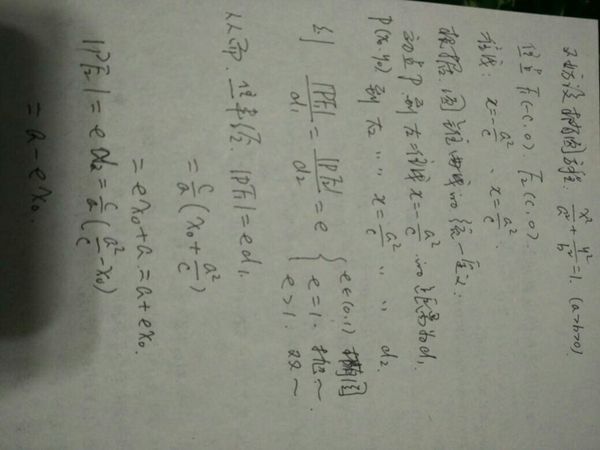 不妨设椭圆方程: x²/a² + y²/b² = 1. (a>b>0)
焦点 F₁(-c, 0). F₂(c, 0).
准线: x = -a²/c 、 x = a²/c.
根据圆锥曲线的统一定义:
动点P到左准线 x = -a²/c 的距离为d₁.
P(x₀, y₀) 到右〃〃 x = a²/c 〃 〃 d₂.
则 |PF₁|/d₁ = |PF₂|/d₂ = e { e∈(0,1) 椭圆
e=1. 抛~.
e>1. 双~
从而. 焦半径: |PF₁| = ed₁.
= c/a (x₀ + a²/c)
= ex₀ + a = a + ex₀.
|PF₂| = ed₂ = c/a (a²/c - x₀)
= a - ex₀.